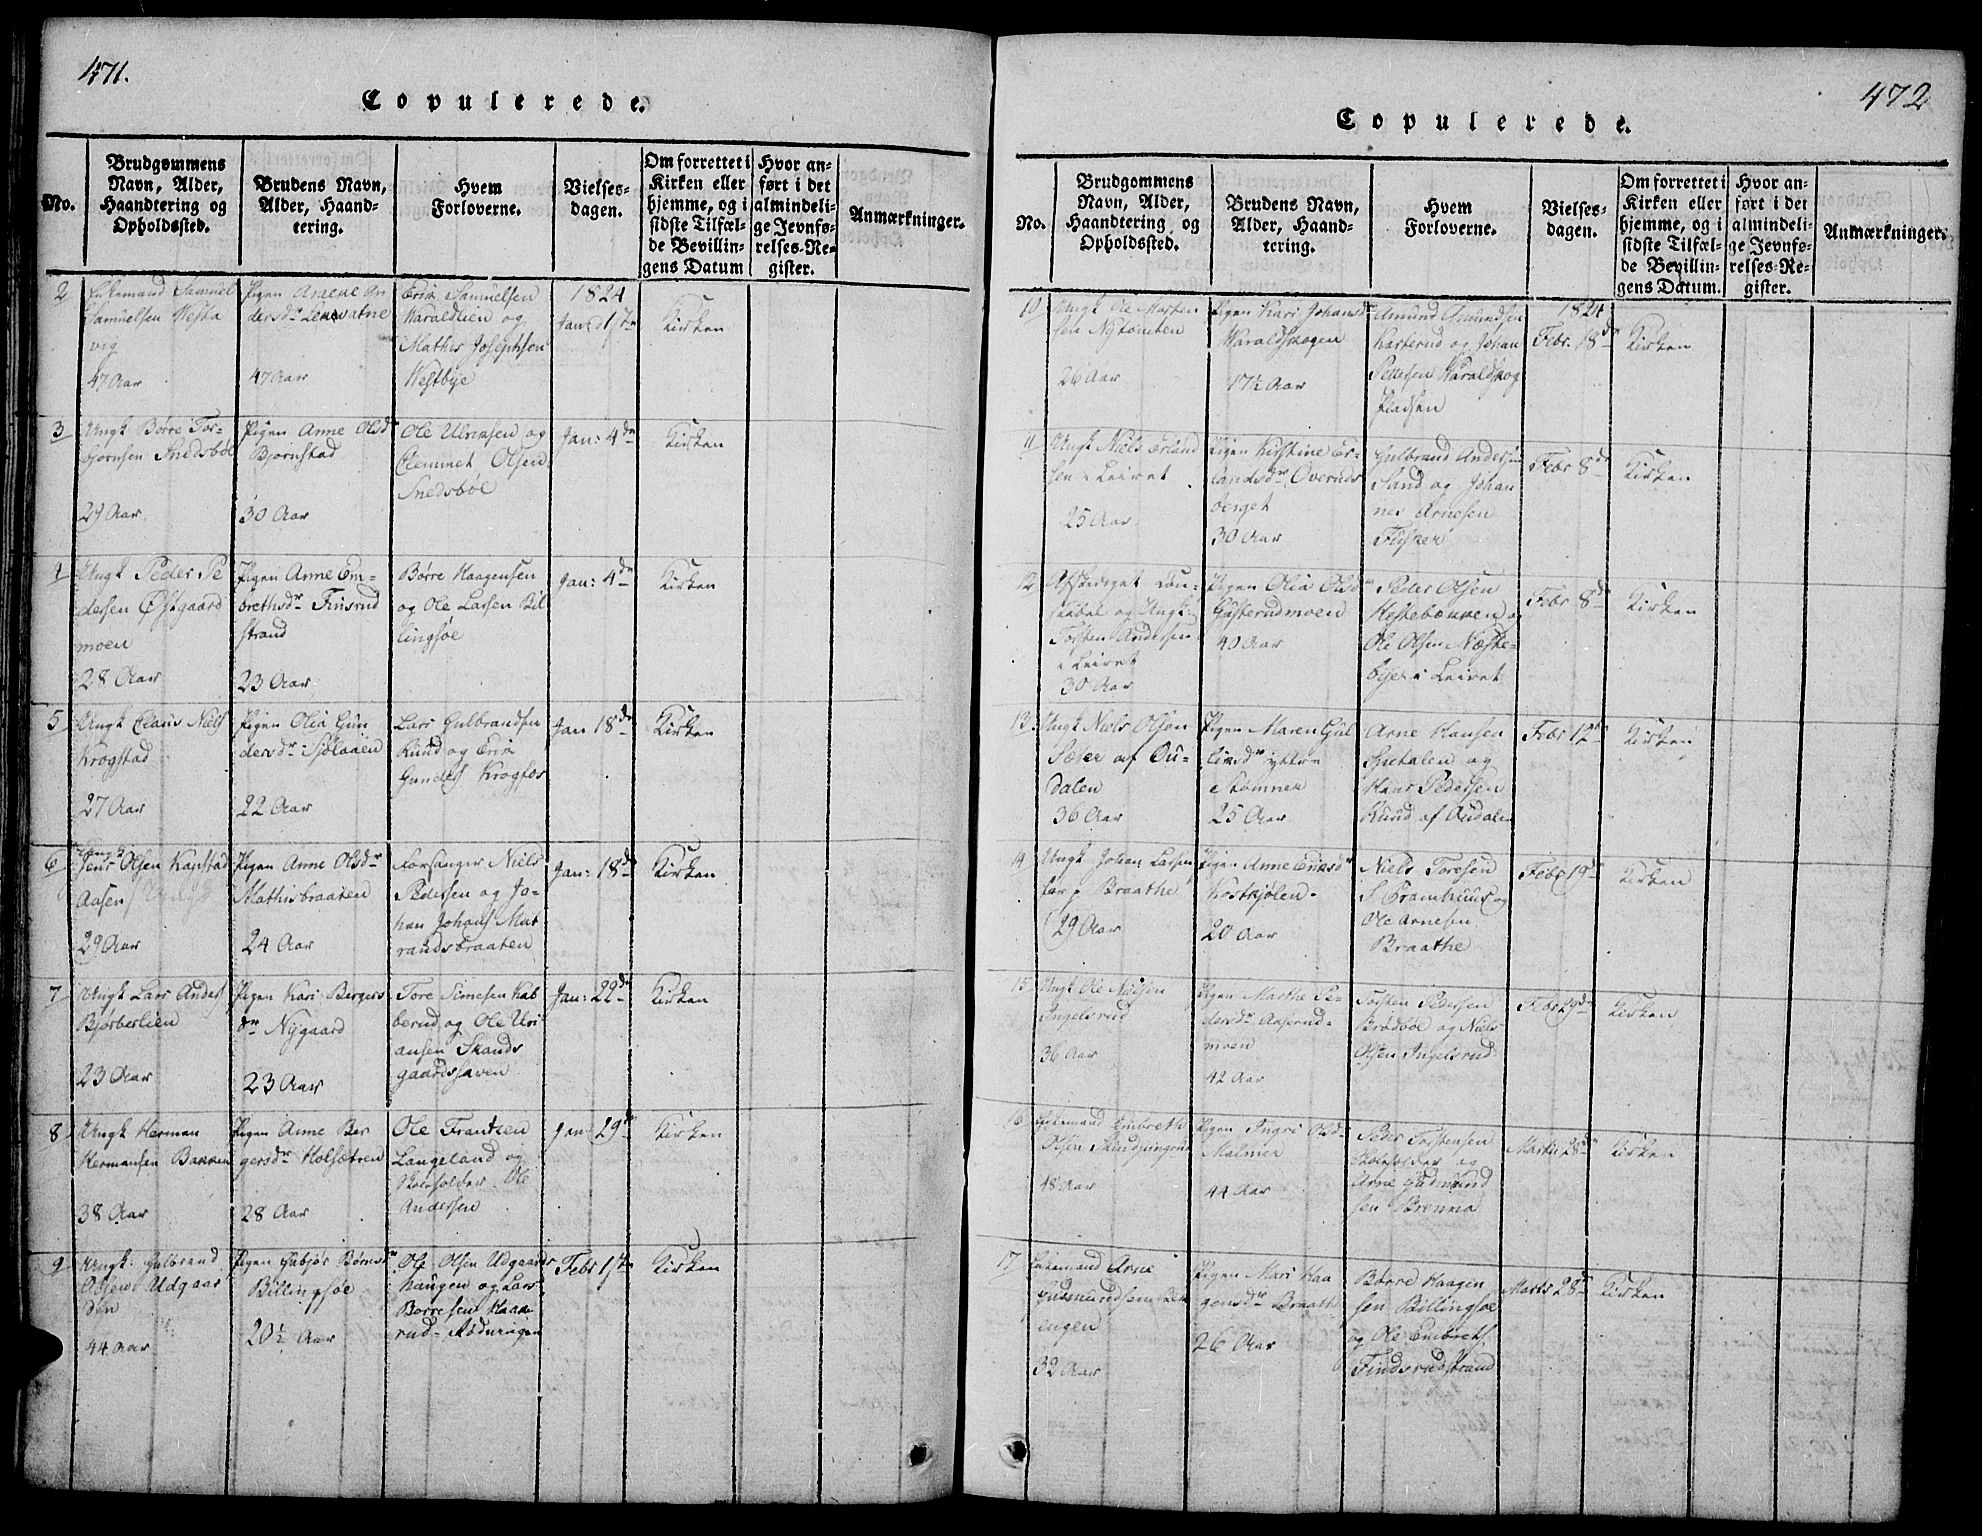 471.
Copulerede.
No.
Brudgommens Navn, Alder, Haandtering og Opholdssted.
Brudens Navn, Alder, Haandtering.
Hvem Forloverne.
Vielsesdagen.
Om forrettet i Kirken eller hjemme, og i sidste Tilfælde Bevillingens Datum
Hvor anført i det almindelige Jevnførelses-Register.
Anmærkninger.
2
Enkemand Samuel
Samuelsen Vesta
vig
47 Aar
Pigen Anene An
dersdr
47 Aar
Erik Samuelsen
Haraldlien og
Mathis Josephsen
Vestbye
1824
Jan: d 1ste
Kirken
3
Ungk Børre Tor-
bjørnsen Snedsbøl
29 Aar
Pigen Anne Olsdr
Bjørnstad
30 Aar
Ole Ulriksen og
Clemmet Olsen
Snedsbøl
Jan: 4de
Kirken
4
Ungk Peder Pe
dersen Østgaard
moen
28 Aar
Pigen Anne Em-
brethsdr Finsrud
strand
23 Aar
Børre Haagensen
og Ole Larsen Bil
lingsøe
Jan: 4de
Kirken
5
Ungk Claus Niels
Krogstad
27 Aar
Pigen Olia Gun
dersdr Sjølaaen
22 Aar
Lars Gulbrandsen
Lund og Erik
Gunders Krogfos
Jan 18de
Kirken
6
Ungk
Jens Olsen Kapstad
Aasen
29 Aar
Pigen Anne Olsdr
Mathisbraaten
24 Aar
Forsanger Niels
Pedersen og Jo-
han Johans Mat
randsbraaten
Jan: 18de
Kirken
7
Ungk Lars Anders
Bjørberlien
23 Aar
Pigen Kari Bergers
dr Nygaard
23 Aar
Tore Simesen Kab
berud og Ole Uri
ansen Skands
gaardshaven
Jan: 22de
Kirken
8
Ungk Herman
Hermansen Bakken
38 Aar
Pigen Anne Ber
gersdr Holsætren
28 Aar
Ole Frantzen
Langeland og
Skoleholder Ole
Andersen
Jan 29de
Kirken
9
Ungk: Gulbrand
Olsen Udgaar
den
44 Aar
Pigen Gubjør Børresdr
Billingsøe
20½ Aar
Ole Olsen Udgaards
haugen og Lars
Børresen Haaa
rud-Ródningen
Febr 1ste
Kirken
472
Copulerede.
No.
Brudgommens Navn, Alder, Haandtering og Opholdssted.
Brudens Navn, Alder, Haandtering.
Hvem Forloverne.
Vielsesdagen.
Om forrettet i Kirken eller hjemme, og i sidste Tilfælde Bevillingens Datum.
Hvor anført i det almindelige Jevnførelses-Register.
Anmærkninger.
10
Ungk Ole Morten
sen Nytomten
26 Aar
Pigen Kari Johansdr
Haraldskogen
17½ Aar
Amund Amundsen
Larterud og Johan
Pettersen Haraldskog
Pladsen
1824
Febr. 18de
Kirken
11
Ungk Niels Erland
sen i Leiret
25 Aar
Pigen Kirstine Er-
landsdr Overuds
berget
30 Aar
Gulbrand Andersen
Sand og Johan
nes Arnesen
Flisker
Febr 8de
Kirken
12
Afskediget Con
stabel og Ungk:
Torsten Andersen
i Leiret
30 Aar
Pigen Olia Olsdr
Gasterudmoen
40 Aar
Peder Olsen
Hestebækken og
Ole Olsen Næste-
bye i Leiret
Febr 8de
Kirken
13
Ungk Niels Olsen
Sæter af Ou-
dalen
36 Aar
Pigen Maren Gul
liksdr yttre
Stømner
25 Aar
Arne Hansen
Spetalen og
Hans Pedersen
Rund af Oudalen
Febr 12te
Kirken
14
Ungk Johan Larsen
Braathe
29 Aar
Pigen Anne Eriksdr
Kostkjølen
20 Aar
Niels Toresen
S. Bramhuus og
Ole Arnesen
Braathe
Febr 19de
Kirken
15
Ungk Ole Nielsen
Ingelsrud
36 Aar
Pigen Marthe Pe-
dersdr Aaserud-
moen
42 Aar
Torsten Pedersen
Brødbøl og Niels
Olsen Ingelsrud
Febr 29de
Kirken
16
Enkemand Embreth
Olsen
48 Aar
Pigen Ingri Olsdr
Malmer
44 Aar
Peder Torstensen
Skoleholder og
Arne Gudmund
sen Brenna
Martii 28de
Kirken
17
Enkemand Arne
Gudmundsen
engen
32 Aar
Pigen Mari Haa
gensdr Braathe
26 Aar
Børre Haagen
sen Billingsøe
og Ole Embrets
Findsrudstrand
Marts 28de
Kirken